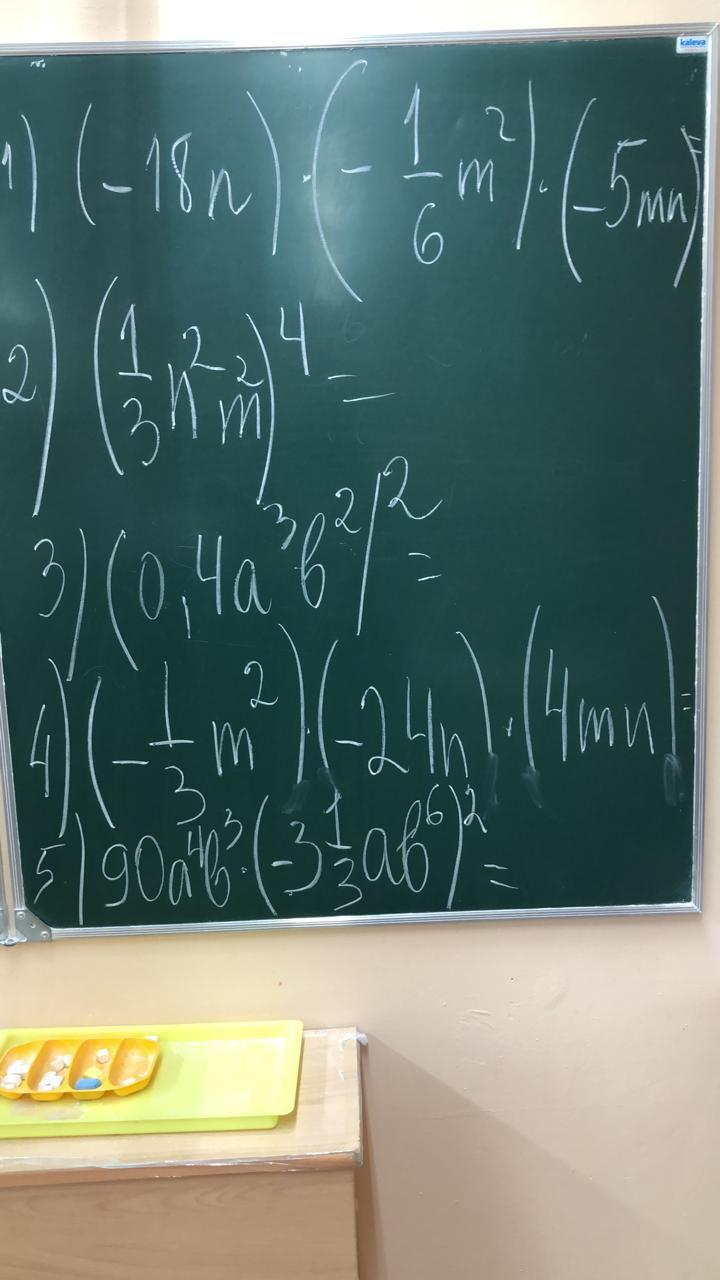 kaleva
1) (-18n)·(-1/6 m²)·(-5mn)=
2) (1/3 n²m²)⁴=
3) (0,4a³b²)²=
4) (-1/3 m²)·(-24n)·(4mn)=
5) 90a⁴b³·(-3 1/3 ab⁶)²=